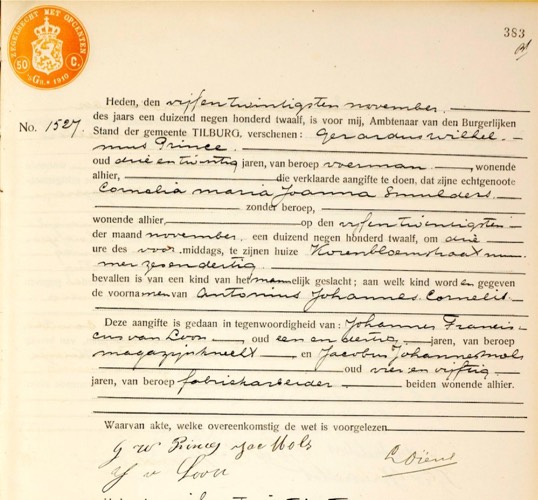 ZEGELRECHT MET OPCENTEN
50 C.
1910
383
Heden, den vijfentwintigsten november
des jaars een duizend negen honderd twaalf, is voor mij, Ambtenaar van den Burgerlijken
No. 1527. Stand der gemeente TILBURG, verschenen: Gerardus wilhel-
mus Prince
oud drie en twintig jaren, van beroep voerman, wonende
alhier, die verklaarde aangifte te doen, dat zijne echtgenoote
Cornelia maria Joanna Smulders
zonder beroep,
wonende alhier, op den vijfentwintigsten
der maand november, een duizend negen honderd twaalf, om drie
ure des voormiddags, te zijnen huize Korenbloemstraat num-
mer zesendertig
bevallen is van een kind van het mannelijk geslacht; aan welk kind worden gegeven
de voornamen van Antonius Johannes Cornelis
Deze aangifte is gedaan in tegenwoordigheid van: Johannes Francis-
cus van Loon oud een en dertig jaren, van beroep
magazijnknecht en Jacobus Johannes mols
oud vier en vijftig
jaren, van beroep fabriekarbeider beiden wonende alhier.
Waarvan akte, welke overeenkomstig de wet is voorgelezen
G W Prince Jac Mols
v Loon